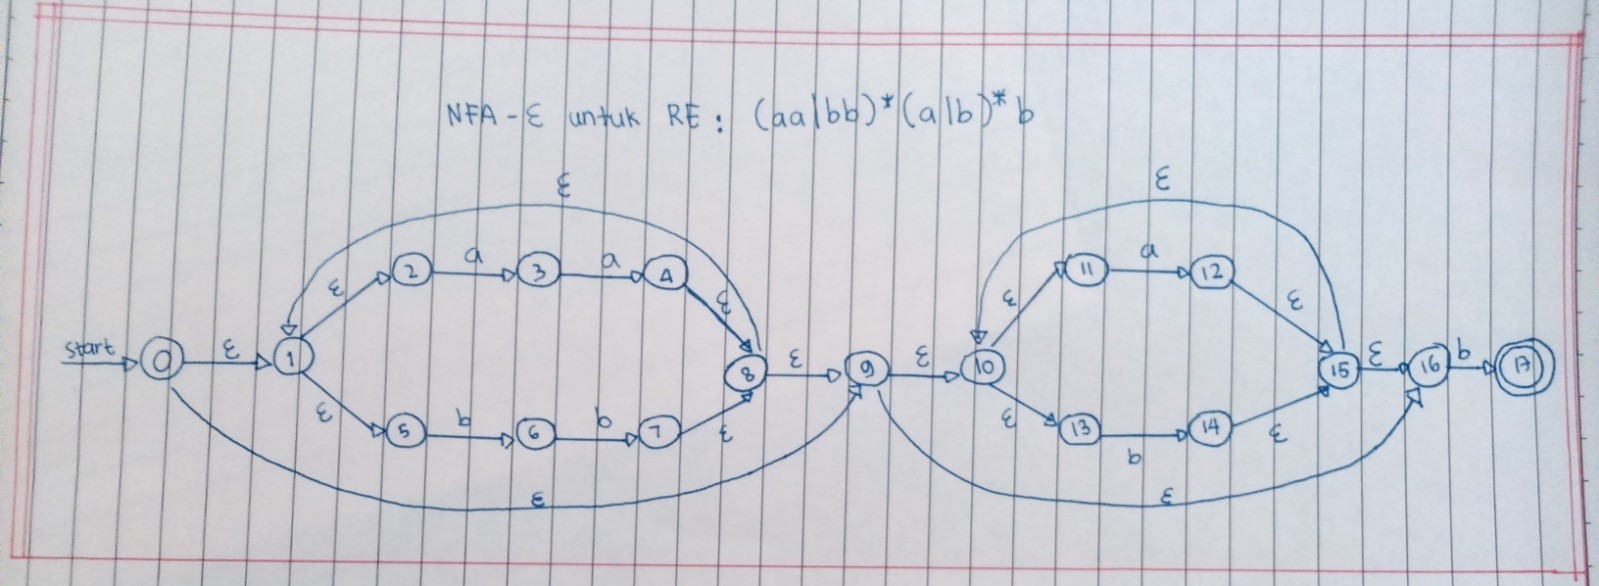 NFA-ε untuk RE: (aa|bb)*(a|b)*b
ε ε
ε 2 a 3 a 4 ε ε 11 a 12 ε
start 0 ε 1 8 ε 9 ε 10 15 ε 16 b 17
ε 5 b 6 b 7 ε ε 13 b 14 ε
ε ε